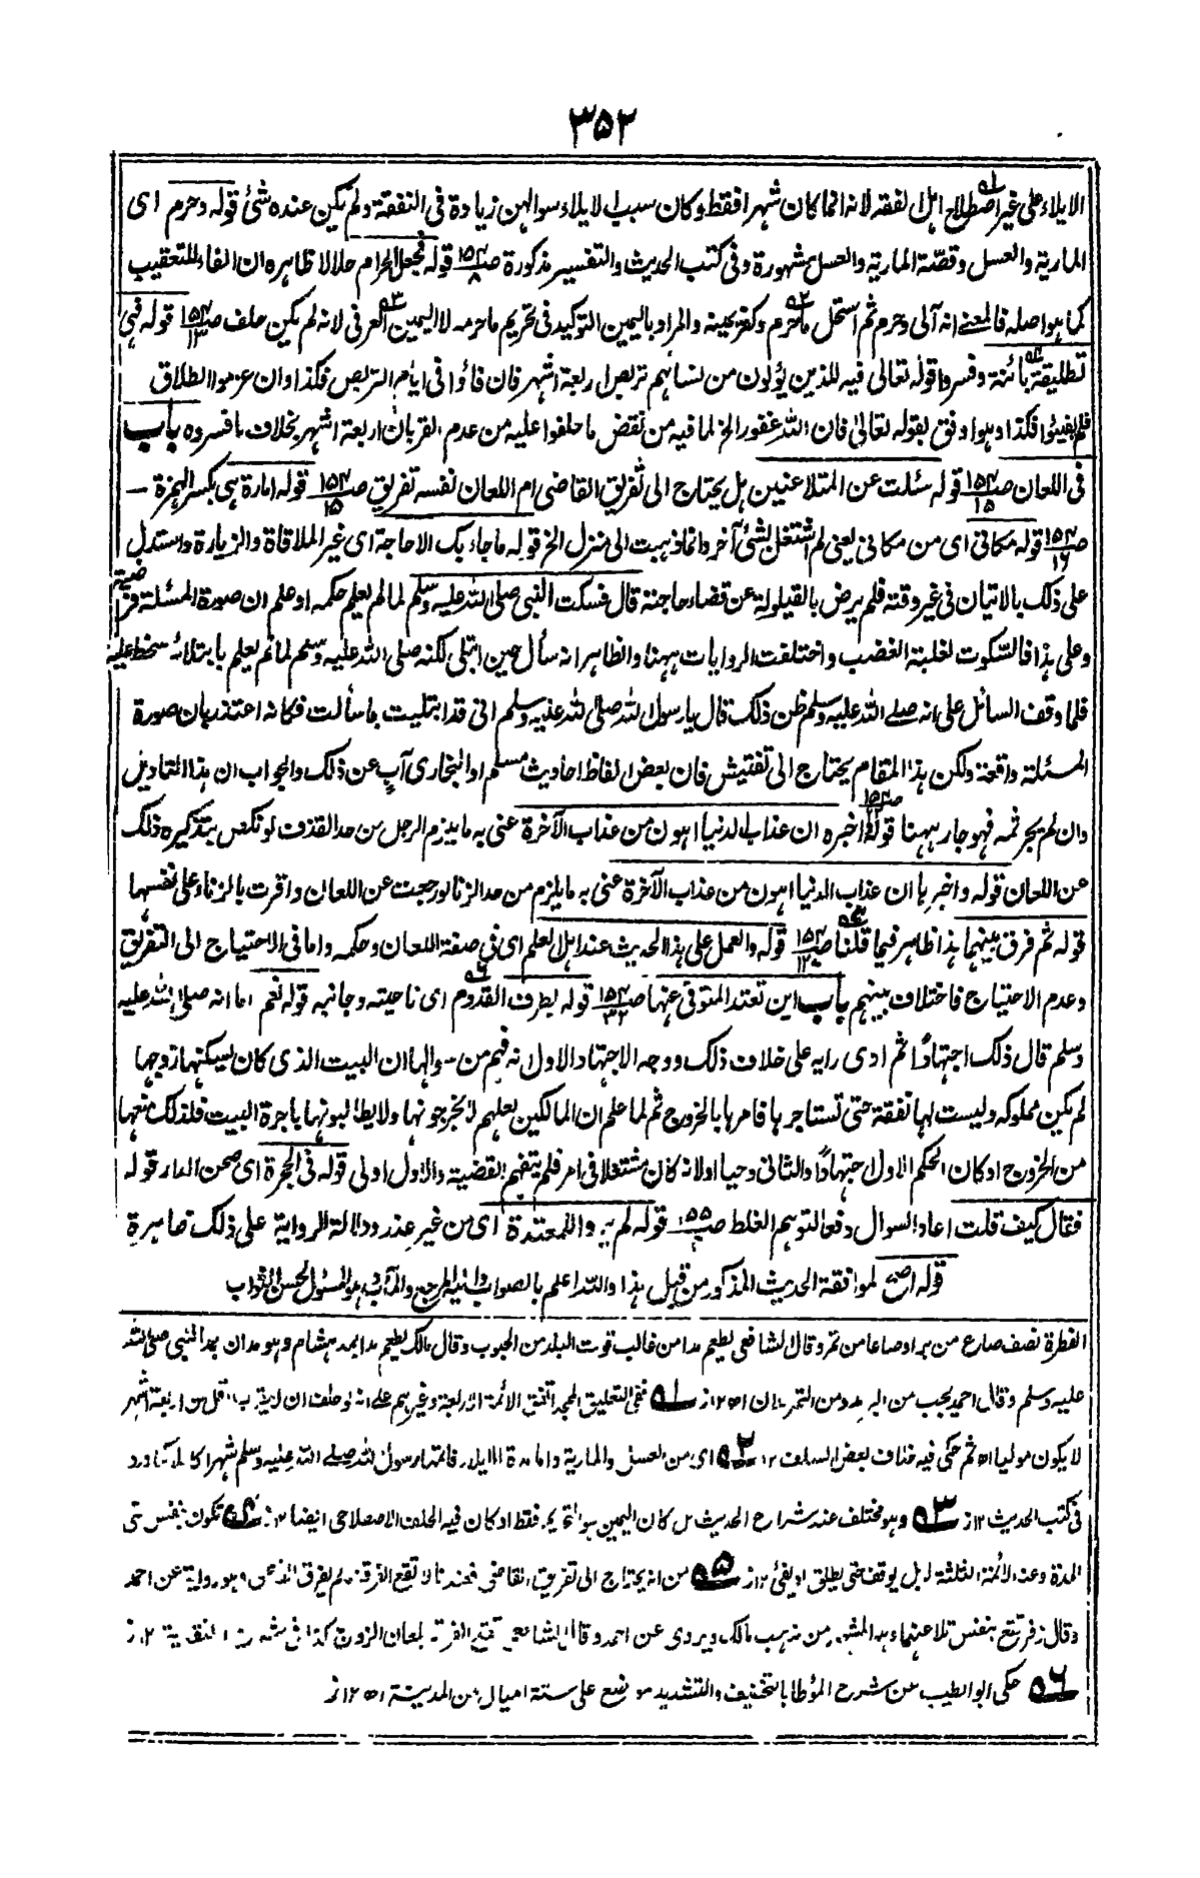 ۳۵۲
الايلاء على غير اصطلاح اهل لفقه لانه انما كان شهرا فقط وكان سبب الايلاء سوالهن زيادة فى النفقة ولم تكن عنده شئ قوله وحرم اى
المارية والعسل وقصة المارية والعسل مشهورة وفى كتب الحديث والتفسير مذكورة صـ ۱۵۴/۸ قوله فجعل الحرام حلالا ظاهره ان الفاء للتعقيب
كما هو اصله فالمعنے انه آلى وحرم ثم استحل ما حرم وكفر يمينه والمراد باليمين التوكيد فى تحريم ما حرمه لا اليمين العرفى لانه لم يكن حلف صـ ۱۵۴/۱۳ قوله فهى
تطليقة بائنة وفسروا قوله تعالى فيه للذين يؤلون من نسائهم تربص اربعة اشهر فان فاؤا فى ايام التربص فكذا وان عزموا الطلاق
فلم يفيئوا فكذا وهوا وفق لقوله تعالى فان الله غفور الخ لما فيه من نقض ما حلفوا عليه من عدم القربان اربعة اشهر بخلاف ما فسروه باب
فى اللعان صـ ۱۵۴/۱۵ قوله سئلت عن المتلاعنين هل يحتاج الى تفريق القاضى ام اللعان نفسه تفريق صـ ۱۵۴/۱۵ قوله امارة هى بكسر الهمزة –
صـ ۱۵۴/۱۶ قوله مكانى اى من مكانى يعنى لم اشتغل بشئ آخر وانما ذهبت الى منزل الخ قوله ما جاء بك الا حاجة اى غير الملاقاة والزيارة واستدل
على ذلك بالاتيان فى غير وقته فلم يرض بالقيلولة عن قضاء حاجته قال فسكت النبى صلى الله عليه وسلم لما لم يعلم حكمه او علم ان صورة المسئلة فرضية
وعلى هذا فالسكوت لغلبة الغضب واختلفت الروايات ههنا والظاهر انه سأل عين ابتلى لكنه صلى الله عليه وسلم لما لم يعلم بابتلائه سخط عليه
فلما وقف السائل على انه صلے الله عليه وسلم ظن ذلك قال يا رسول الله صلى الله عليه وسلم انى قد ابتليت بما سألت فكانه اعتذر بان صورة
المسئلة واقعة ولكن هذا المقام يحتاج الى تفتيش فان بعض الفاظ احاديث مسلم او البخارى آبٍ عن ذلك والجواب ان هذا التاويل
وان لم يجر ثمه فهو جار ههنا قوله صـ ۱۵۴ اخبره ان عذاب الدنيا اهون من عذاب الآخرة عنى به ما يلزم الرجل من حد القذف لو نكص بتذكيره ذلك
عن اللعان قوله واخبرها ان عذاب الدنيا اهون من عذاب الآخرة عنى به ما يلزم من حد الزنا لو رجعت عن اللعان واقرت بالزناء على نفسها
قوله ثم فرق بينهما هذا ظاهر فيما قلنا صـ ۱۵۴/۱۲ قوله والعمل على هذا الحديث عند اهل العلم اى فى صفة اللعان وحكمه واما فى الاحتياج الى التفريق
وعدم الاحتياج فاختلاف بينهم باب اين تعتد المتوفى عنها صـ ۱۵۴/۲۲ قوله بطرف القدوم اى ناحيته وجانبه قوله نعم اما انه صلى الله عليه
وسلم قال ذلك اجتهادًا ثم ادى رايه على خلاف ذلك ووجه الاجتهاد الاول انه فهم من سوالها ان البيت الذى كان يسكنها زوجها
لم يكن مملوكه وليست لها نفقة حتى تستاجرها فامرها بالخروج ثم لما علم ان المالكين لعلهم لا يخرجونها ولا يطالبونها باجرة البيت فلذلك منعها
من الخروج او كان الحكم الاول اجتهادًا والثانى وحيا اولانه كان مشتغلا فى امر فلم يتفهم القضية والاول اولى قوله فى الحجرة اى صحن الدار قوله
فقال كيف قلت اعاد السوال دفعا لتوهم الغلط صـ ۱۵۵ قوله لم يروا للمعتدة اى من غير عذر ودلالة الرواية على ذلك ظاهرة
قوله اصح لموافقة الحديث المذكور من قبل هذا والله اعلم بالصواب واليه المرجع والمآب، هو المسئول لحسن الثواب
الفطرة نصف صاع من بر او صاعا من تمر وقال الشافعى يطعم مدا من غالب قوت البلد من الحبوب وقال مالك يطعم مدا بمد هشام وهو مدان بمد النبى صلى الله
عليه وسلم وقال احمد يجب من البر مد ومن التمر مدان اھ ۱۲ز ۵۱ ففى التعليق الممجد اتفق الائمة الاربعة وغيرهم على انه لو حلف ان لا يقرب اقل من اربعة اشهر
لا يكون موليا اھ ثم حكى فيه خلاف بعض السلف ۱۲ ۵۲ اى من العسل والمارية واما مدة الايلاء فاتمها رسول الله صلے الله عليه وسلم شهرا كاملا كما ورد
فى كتب الحديث ۱۲ز ۵۳ وهو مختلف عند شراح الحديث هل كان اليمين هو التحريم فقط او كان فيه الحلف الاصطلاحى ايضا ۱۲ز ۵۴ تكون بنفس مضى
المدة وعند الائمة الثلثة لا بل يوقف حتى يطلق او يفئ ۱۲ز ۵۵ من انه يحتاج الى تفريق القاضى فعندنا لا تقع الفرقة ما لم يفرق القاضى وهو رواية عن احمد
وقال زفر تقع بنفس تلاعنهما وهو المشهور من مذهب مالك ويروى عن احمد وقال الشافعى تقع الفرقة بلعان الزوج كذا فى شرح النقاية ۱۲ز
۵۶ حكى ابو الطيب عن شرح المؤطا بالتخفيف والتشديد موضع على ستة اميال من المدينة اھ ۱۲ز